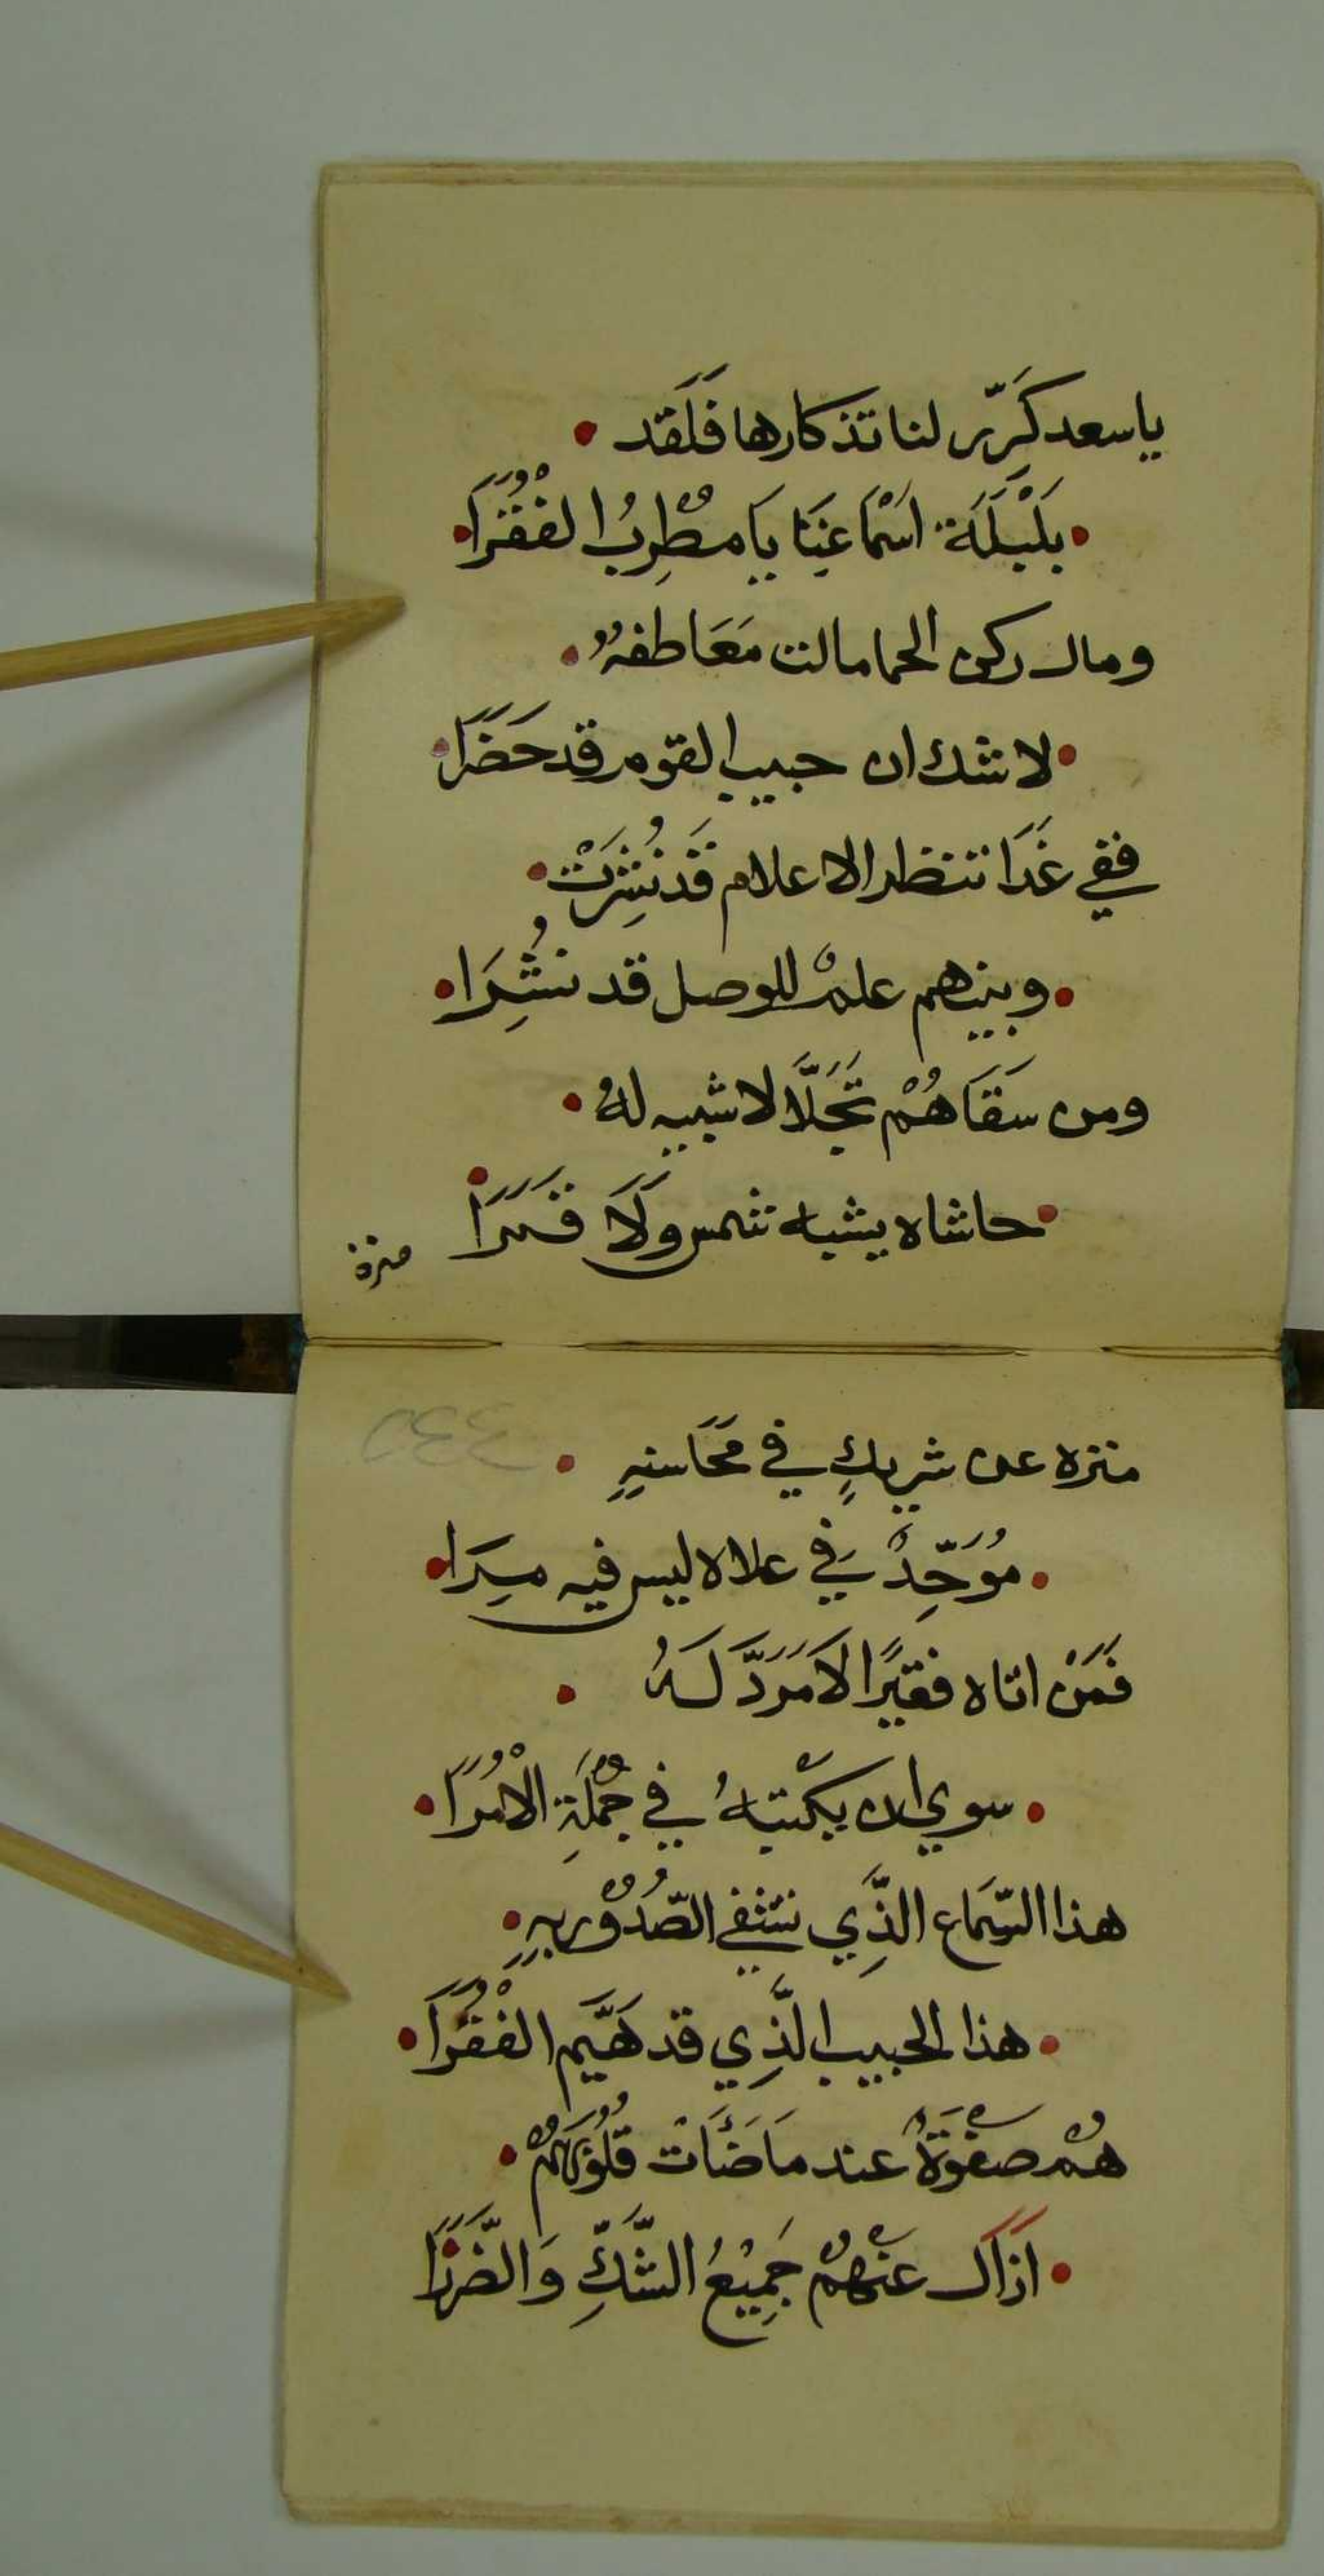 ياسعد كَرِّر لنا تذكارها فَلَقد
بَلْبَلَة اسْمَاعِنَا يَا مطْرِبُ الفُقْرَا
ومال ركن الحما مالت مَعَاطفهُ
لا شك ان حبيب القوم قد حَضَرَا
ففي غَدَا تنظر الاعلام قَد نُشِرَتْ
وبينهم علمٌ للوصل قد نُشِرَا
ومن سَقَاهُمْ تَجَلَّا لا شبيه لهُ
حاشاه يشبه شمس وَلَا قَمَرَا
منزه
منزه عن شريكٍ في مَحَاسنِهِ
مُوَحِّدٌ فِي علاه ليس فيه مِرَا
فَمَنْ اتاه فقيرًا لَا مَرَدَّ لَهُ
سوي ان يكْتبهُ في جُمْلَةِ الْأُمَرَا
هذا السَّمَاع الَّذِي تشفي الصُّدُوْر بِهِ
هذا الحبيب الَّذِي قد هَيَّم الفُقْرَا
هُمْ صفْوَةٌ عند مَا ضَأَت قُلُوبَهُمْ
ازَال عَنْهُمْ جَمِيْعُ الشَّكِّ وَالضَّرَرَا